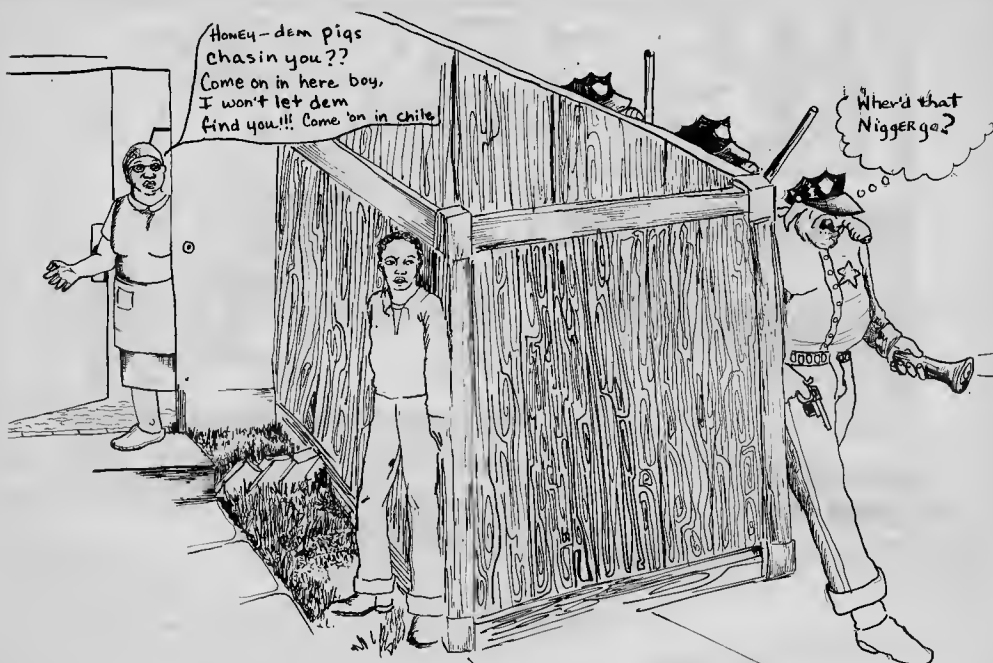 Honey - dem pigs
chasin you??
Come on in here boy,
I won't let dem
find you!!! Come 'on in chile
Wher'd that
NiggER go?